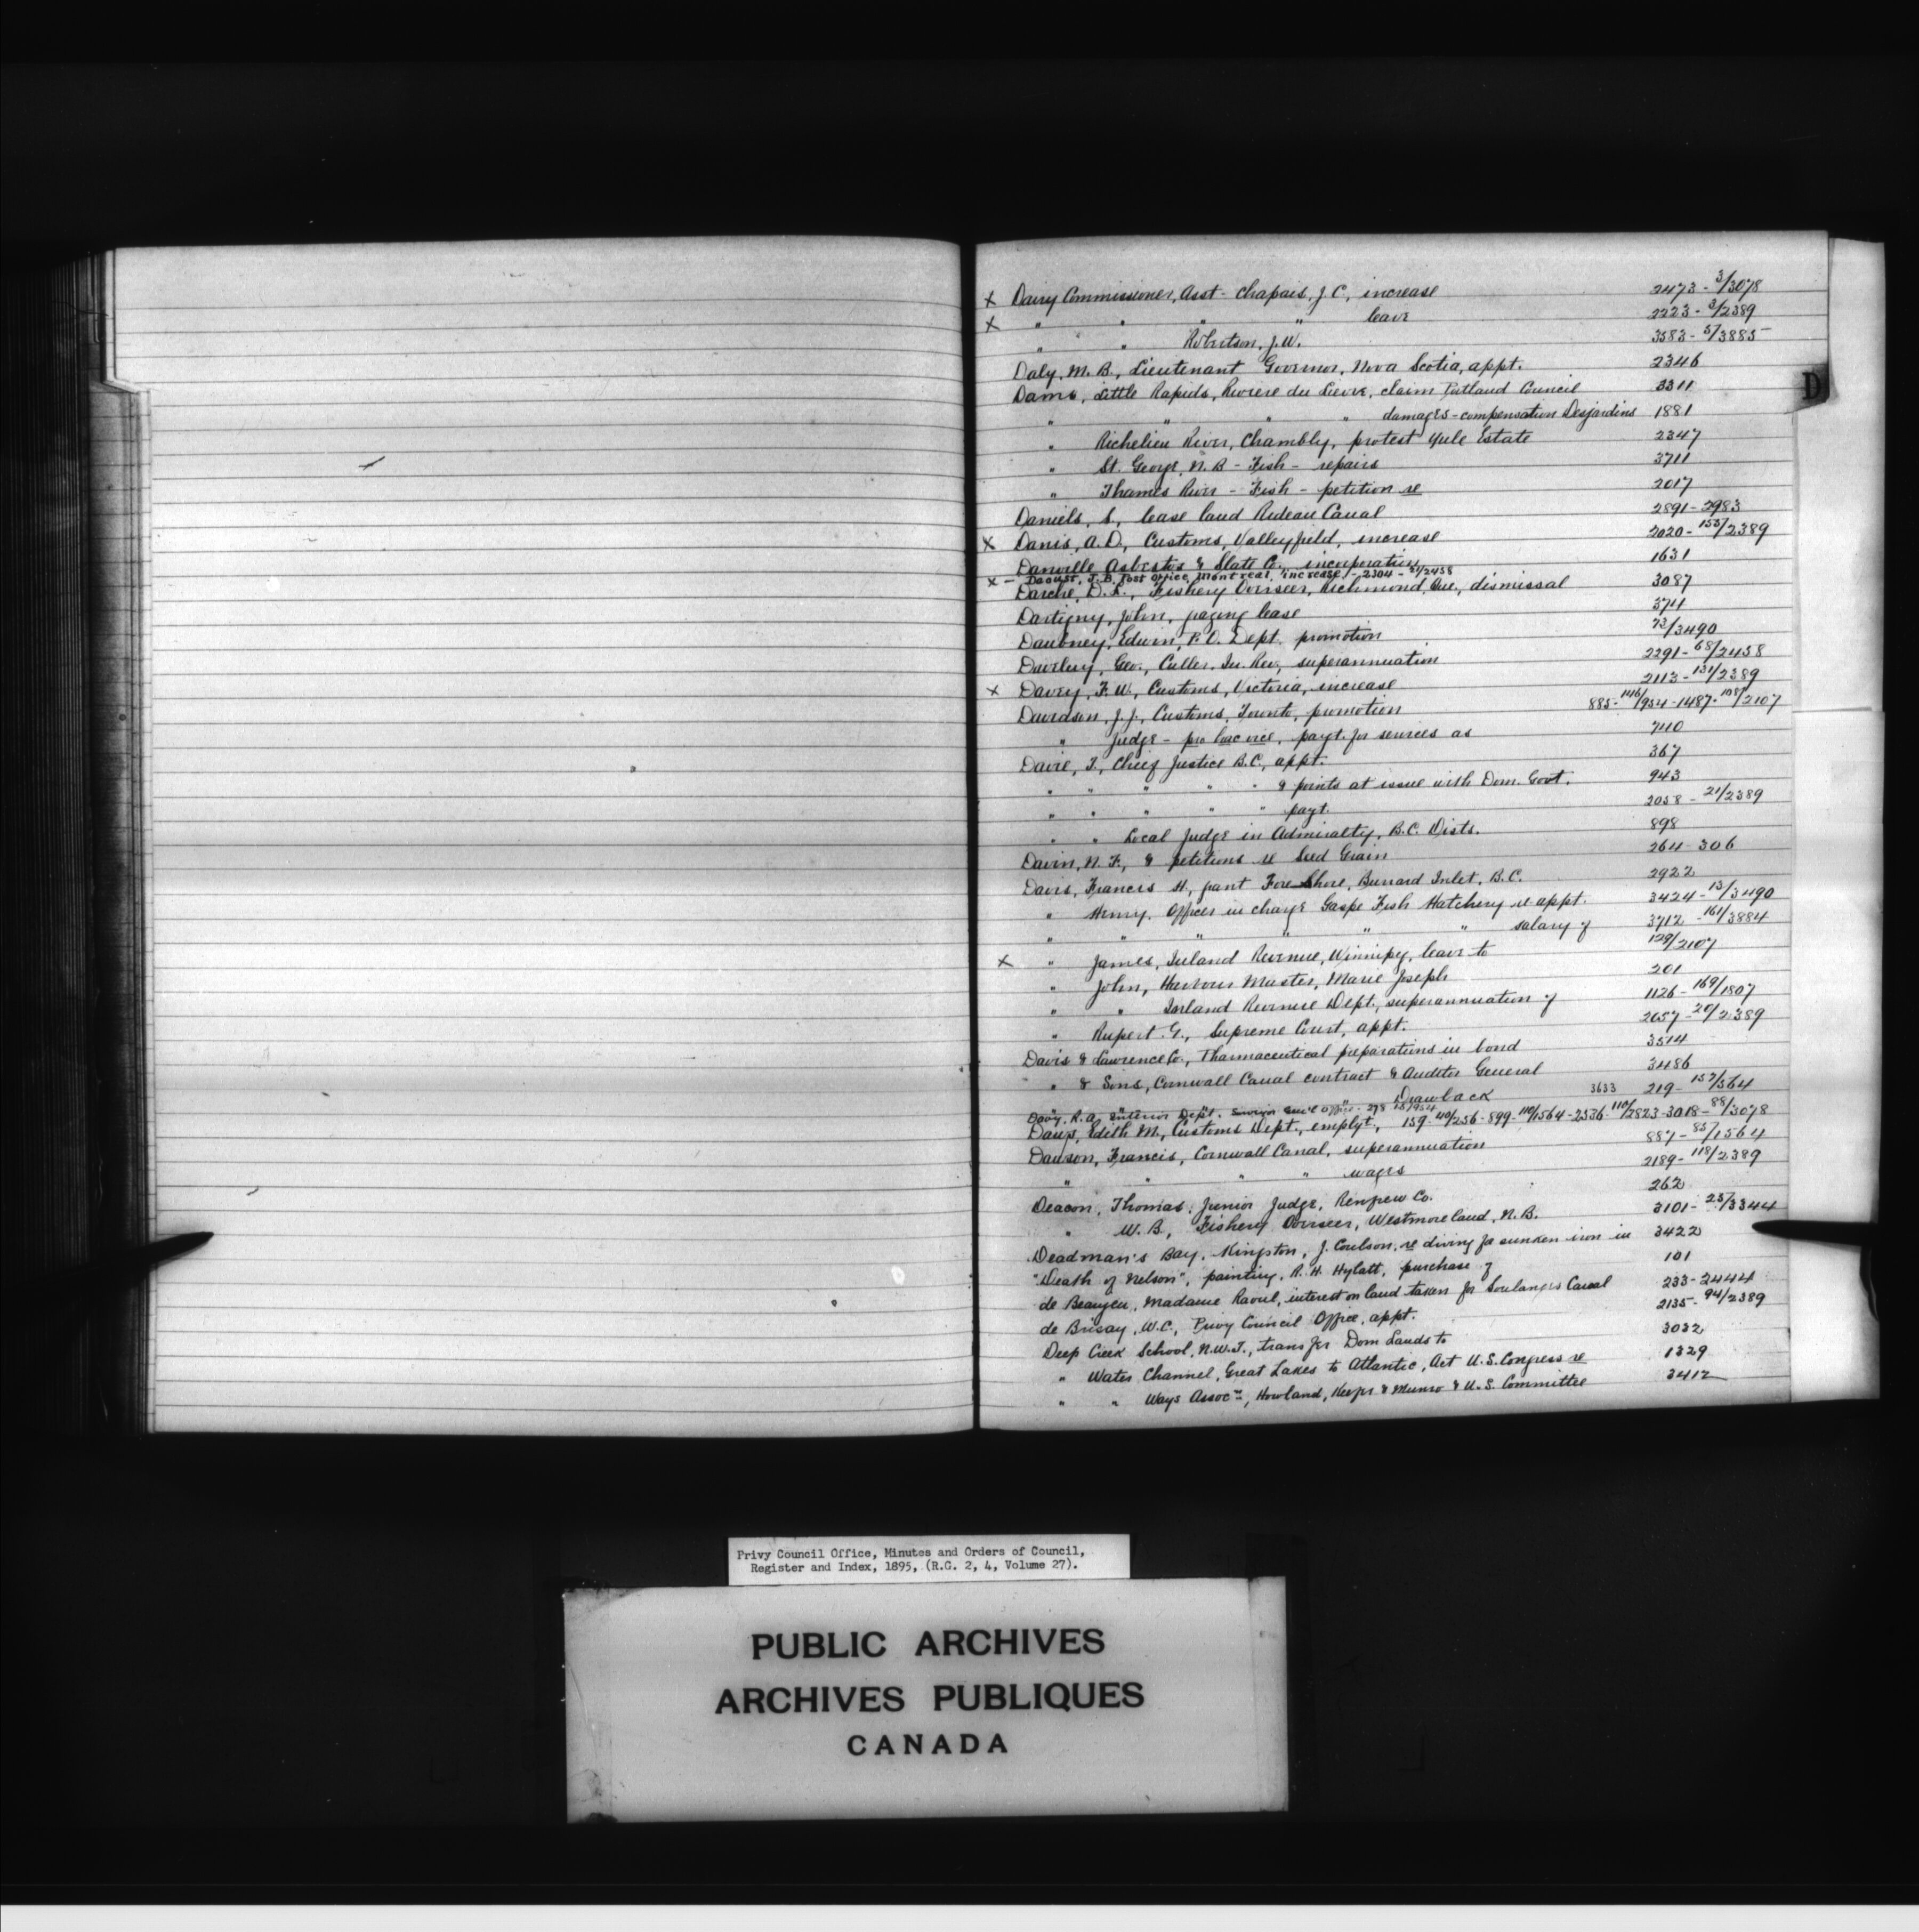 x Dairy Commissioner, Asst - Chapais, J. C., increase 2473 - 3/3078
x " " " " leave 2223 - 3/2389
" " Robertson, J. W. 3583 - 5/3885
Daly, M. B., Lieutenant Governor, Nova Scotia, appt. 2346
Dams, Little Rapids, Riviere du Lievre, claim Portland Council 3311
" " " " damages - compensation Desjardins 1881
" Richelieu River, Chambly, protest Yule Estate 2347
" St. George, N.B - Fish - repairs 3711
" Thames River - Fish - petition re 2017
Daniels, S., lease land Rideau Canal 2891 - 2983
x Danis, A. D., Customs, Valleyfield, increase 2020 - 153/2389
Danville Asbestos & Slate Co., incorporation 1631
x - Daoust, J. B. Post Office, Montreal, increase - 2304 - 21/2458
Darche, D. L., Fishery Overseer, Richmond, Que, dismissal 3087
Dartigny, John, grazing lease 374
Daubney, Edwin, P. O. Dept. promotion 73/3490
Daveluy, Geo., Culler, In. Rev., superannuation 2291 - 68/2458
x Davey, F. W., Customs, Victoria, increase 2113 - 131/2389
Davidson, J. J., Customs, Toronto, promotion 885 - 146/954 - 1487 - 108/2107
" Judge - pro hac vice, payt. for services as 740
Davie, T., Chief Justice B.C., appt. 367
" " " " " & points at issue with Dom. Govt. 943
" " " " " payt. 2058 - 21/2389
" " Local Judge in Admiralty, B.C. Dists. 898
Davin, N. F., & petitions re Seed Grain 264 - 306
Davis, Francis H., grant Fore Shore, Burrard Inlet, B.C. 2922
" Henry, Officer in charge Gaspe Fish Hatchery re appt. 3424 - 13/3490
" " " " " " salary of 3712 - 161/3884
x " James, Inland Revenue, Winnipeg, leave to 129/2107
" John, Harbour Master, Marie Joseph 201
" " Inland Revenue Dept., superannuation of 1126 - 169/1807
" Rupert G., Supreme Court, appt. 2657 - 20/2389
Davis & Lawrence Co., Pharmaceutical preparations in bond 3514
" & Sons, Cornwall Canal contract & Auditor General 3486
" " " " Drawback 3633 219 - 153/564
Davy, R. A. Interior Dept. Surveyor Gen'l Office - 278 15/954
Daws, Edith M., Customs Dept., emplyt., 159 - 40/256 - 899 - 110/1564 - 2536 - 110/2823 - 3018 - 88/3078
Dawson, Francis, Cornwall Canal, superannuation 887 - 85/1564
" " " " wages 2189 - 118/2389
Deacon, Thomas, Junior Judge, Renfrew Co. 262
" W. B., Fishery Overseer, Westmoreland, N. B. 3101 - 25/3344
Deadman's Bay, Kingston, J. Coulson, re diving for sunken iron in 3422
"Death of Nelson", painting, R. H. Hylatt, purchase of 101
de Beaujeu, Madame Raoul, interest on land taken for Soulanges Canal 233 - 2444
de Brisay, W.C., Privy Council Office, appt. 2135 - 94/2389
Deep Creek School, N.W.T., transfer Dom Lands to 3032
" Water Channel, Great Lakes to Atlantic, Act U.S. Congress re 1329
" " Ways Assocn, Howland, Keefer & Munro & U.S. Committee 3412
D
Privy Council Office, Minutes and Orders of Council,
Register and Index, 1895, (R.G. 2, 4, Volume 27).
PUBLIC ARCHIVES
ARCHIVES PUBLIQUES
CANADA